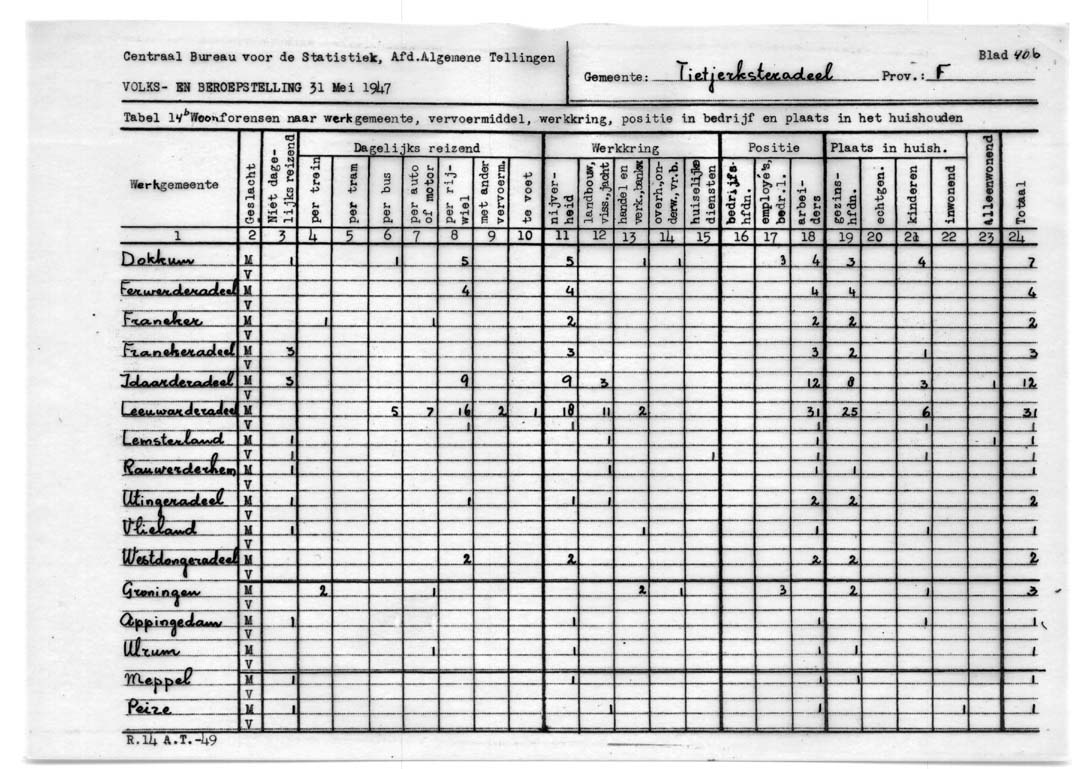 Centraal Bureau voor de Statistiek, Afd.Algemene Tellingen
Gemeente: Tietjerksteradeel Prov.: F
Blad 40b
VOLKS- EN BEROEPSTELLING 31 Mei 1947
Tabel 14b Woonforensen naar werkgemeente, vervoermiddel, werkkring, positie in bedrijf en plaats in het huishouden
Werkgemeente
Geslacht
Niet dage-
lijks reizend
Dagelijks reizend
per trein
per tram
per bus
per auto
of motor
per rij-
wiel
met ander
vervoerm.
te voet
Werkkring
nijver-
heid
landbouw,
viss.,jacht
handel en
verk.,bankw
overh.,on-
derw.,vr.b.
huiselijke
diensten
Positie
bedrijfs-
hfdn.
employé's,
bedr.l.
arbei-
ders
Plaats in huish.
gezins-
hfdn.
echtgen.
kinderen
inwonend
Alleenwonend
Totaal
1 2 3 4 5 6 7 8 9 10 11 12 13 14 15 16 17 18 19 20 21 22 23 24
Dokkum M 1 1 5 5 1 1 3 4 3 4 7
V
Ferwerderadeel M 4 4 4 4 4
V
Franeker M 1 1 2 2 2 2
V
Franekeradeel M 3 3 3 2 1 3
V
Idaarderadeel M 3 9 9 3 12 8 3 1 12
V
Leeuwarderadeel M 5 7 16 2 1 18 11 2 31 25 6 31
V 1 1 1 1 1
Lemsterland M 1 1 1 1 1
V 1 1 1 1 1
Rauwerderhem M 1 1 1 1 1
V
Utingeradeel M 1 1 1 1 2 2 2
V
Vlieland M 1 1 1 1 1
V
Westdongeradeel M 2 2 2 2 2
V
Groningen M 2 1 2 1 3 2 1 3
V
Appingedam M 1 1 1 1 1
V
Ulrum M 1 1 1 1 1
V
Meppel M 1 1 1 1 1
V
Peize M 1 1 1 1 1
V
R.14 A.T.-49